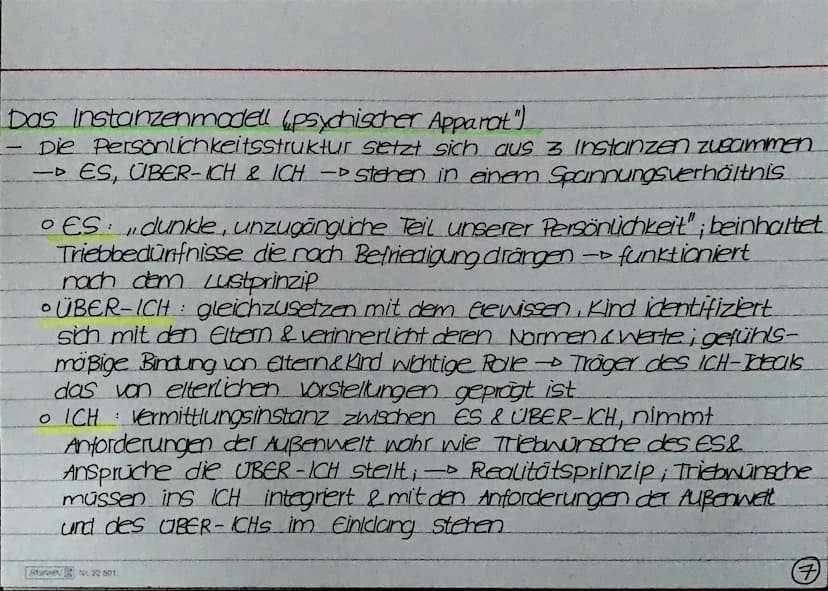 Das Instanzenmodell („psychischer Apparat")
- Die Persönlichkeitsstruktur setzt sich aus 3 Instanzen zusammen
→ ES, ÜBER-ICH & ICH → stehen in einem Spannungsverhältnis
o ES: „dunkle, unzugängliche Teil unserer Persönlichkeit"; beinhaltet
Triebbedürfnisse die nach Befriedigung drängen → funktioniert
nach dem Lustprinzip
o ÜBER-ICH: gleichzusetzen mit dem Gewissen, Kind identifiziert
sich mit den Eltern & verinnerlicht deren Normen & Werte; gefühls-
mäßige Bindung von Eltern & Kind wichtige Rolle → Träger des ICH-Ideals
das von elterlichen Vorstellungen geprägt ist
o ICH: Vermittlungsinstanz zwischen ES & ÜBER-ICH, nimmt
Anforderungen der Außenwelt wahr wie Triebwünsche des ES &
Ansprüche die ÜBER-ICH stellt; → Realitätsprinzip; Triebwünsche
müssen ins ICH integriert & mit den Anforderungen der Außenwelt
und des ÜBER-ICHs im Einklang stehen
Nr. 22 501
7